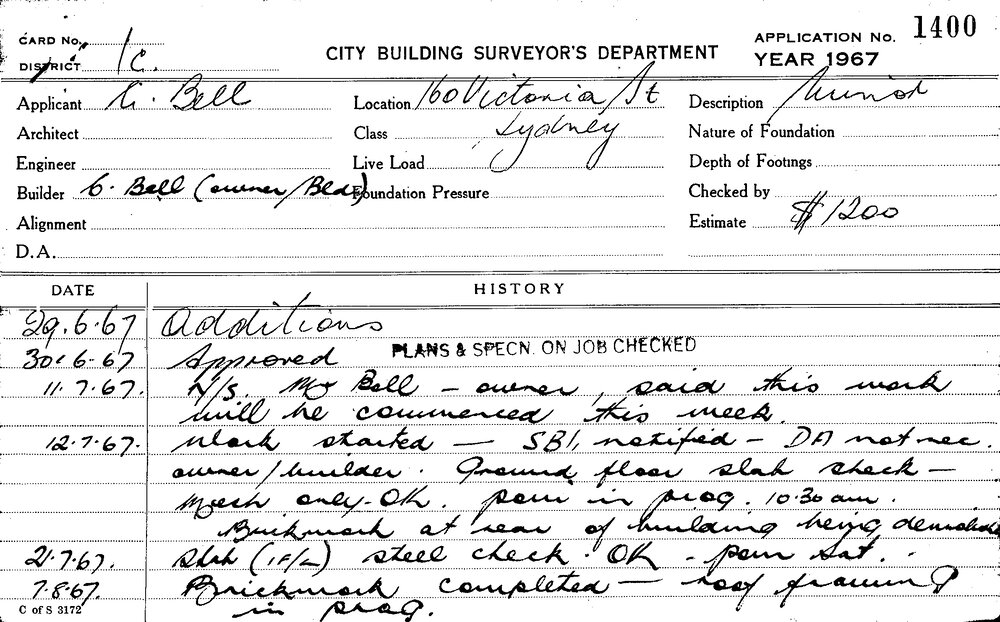 CARD No.
DISTRICT 1C.
CITY BUILDING SURVEYOR'S DEPARTMENT
APPLICATION No. 1400
YEAR 1967
Applicant G. Bell
Location 160 Victoria St
Description Minor
Architect
Class Sydney
Nature of Foundation
Engineer
Live Load
Depth of Footings
Builder G. Bell (owner/Bld)
Foundation Pressure
Checked by
Alignment
Estimate $1200
D.A.
DATE HISTORY
29.6.67 Additions
30.6.67 Approved PLANS & SPECN. ON JOB CHECKED
11.7.67. N/S. Mr Bell - owner, said this work
will be commenced this week.
12.7.67. Work started - SBI, notified - DA not nec.
owner/builder. Ground floor slab check -
Mesh only - OK. pour in prog. 10.30 am.
Brickwork at rear of building being demolished
21.7.67. Slab (1F/L) steel check. OK - pour Sat.
7.8.67. Brickwork completed - roof framing
in prog.
C of S 3172